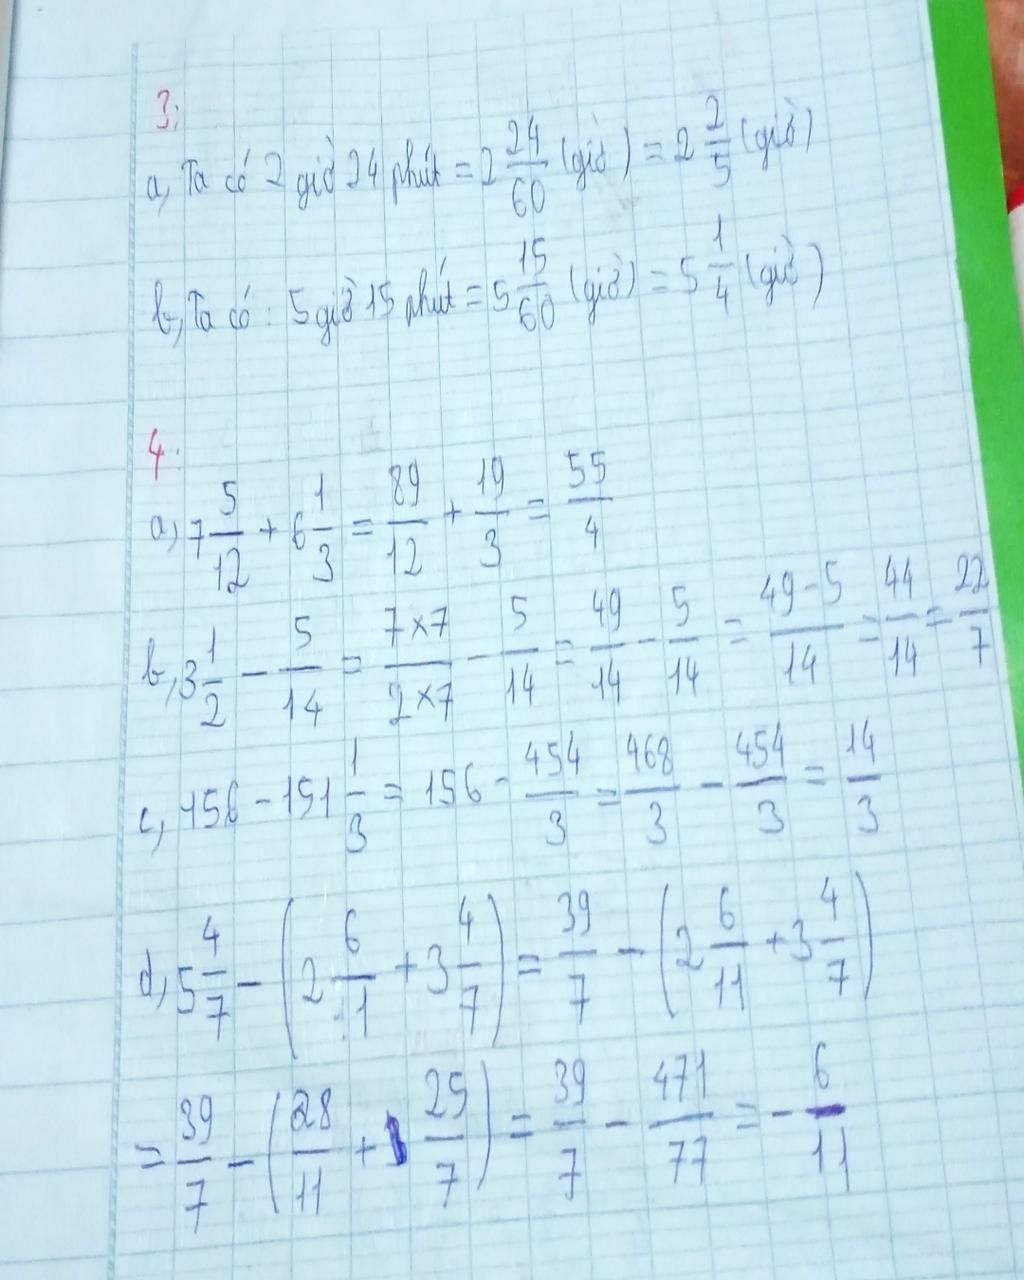 3:
a, Ta có 2 giờ 24 phút = 2 24/60 (giờ) = 2 2/5 (giờ)
b, Ta có: 5 giờ 15 phút = 5 15/60 (giờ) = 5 1/4 (giờ)
4:
a, 7 5/12 + 6 1/3 = 89/12 + 19/3 = 55/4
b, 3 1/2 - 5/14 = 7×7/2×7 - 5/14 = 49/14 - 5/14 = 49-5/14 = 44/14 = 22/7
c, 156 - 151 1/3 = 156 - 454/3 = 468/3 - 454/3 = 14/3
d, 5 4/7 - (2 6/11 + 3 4/7) = 39/7 - (2 6/11 + 3 4/7)
= 39/7 - (28/11 + 25/7) = 39/7 - 471/77 = - 6/11